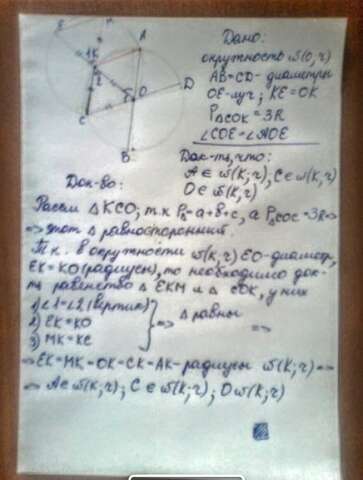 Дано:
окружность ω(O,r)
AB=CD- диаметры
OE-луч; KE=OK
P△COK = 3R
∠COE=∠AOE
Док-ть, что:
A∈ω(K;r), C∈ω(K,r)
O∈ω(K,r)
Док-во:
Рассм △KCO; т.к P△=a+b+c, а P△COK=3R=>
=> этот △ равносторонний.
Т.к. в окружности ω(K,r) EO-диаметр,
EK=KO(радиусы), то необходимо док-
ть равенство △ EKM и △ COK, у них
1) ∠1=∠2 (вертик)
2) EK=KO
3) MK=KC
=> △ равны
=>
=> EK=MK=OK=CK=AK-радиусы ω(K;r) =>
=> A∈ω(K;r); C∈ω(K;r); O∈ω(K;r)
E
A
1 K
2
O
D
C
B